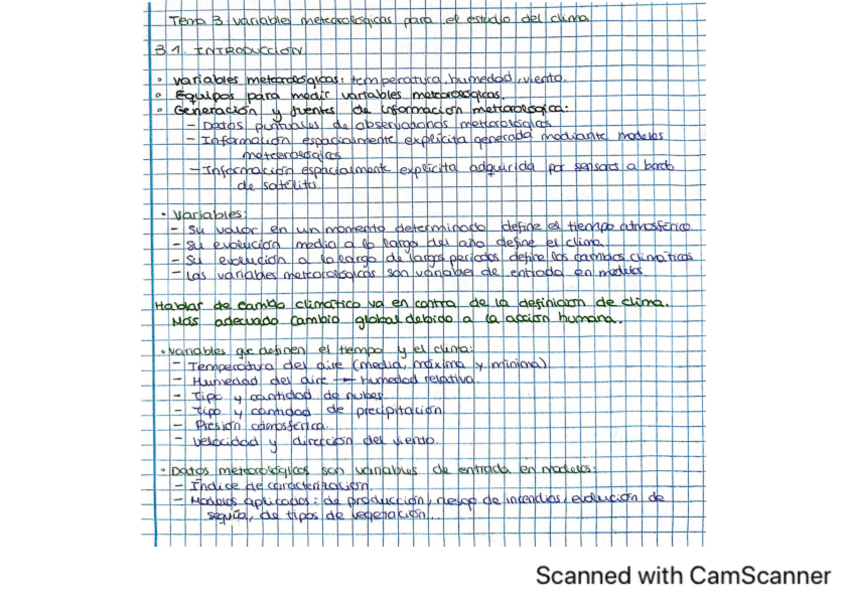 Tema 3: variables meteorológicas para el estudio del clima
3.1. INTRODUCCIÓN
• variables meteorológicas: temperatura, humedad, viento.
• Equipos para medir variables meteorológicas.
• Generación y fuentes de información meteorológica:
- Datos puntuales de observatorios meteorológicos
- Información espacialmente explícita generada mediante modelos
meteorológicos
- Información espacialmente explícita adquirida por sensores a bordo
de satélite.
• Variables:
- Su valor en un momento determinado define el tiempo atmosférico
- Su evolución media a lo largo del año define el clima.
- Su evolución a lo largo de largos periodos define los cambios climáticos
- Las variables meteorológicas son variables de entrada en modelos
Hablar de cambio climático va en contra de la definición de clima.
Más adecuado cambio global debido a la acción humana.
• Variables que definen el tiempo y el clima:
- Temperatura del aire (media, máxima y mínima)
- Humedad del aire → humedad relativa.
- Tipo y cantidad de nubes.
- Tipo y cantidad de precipitación
- Presión atmosférica.
- Velocidad y dirección del viento.
• Datos meteorológicos son variables de entrada en modelos:
- Índice de caracterización.
- Modelos aplicados: de producción, riesgo de incendios, evolución de
sequía, de tipos de vegetación...
Scanned with CamScanner